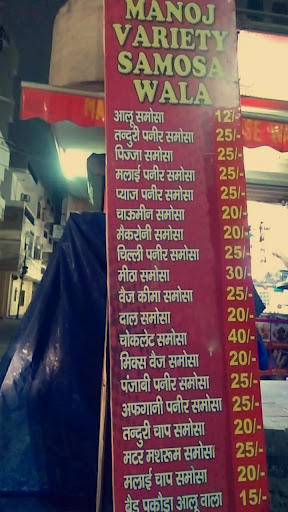 MANOJ
VARIETY
SAMOSA
WALA
आलू समोसा 12/-
तन्दुरी पनीर समोसा 25/-
पिज्जा समोसा 25/-
मलाई पनीर समोसा 25/-
प्याज पनीर समोसा 25/-
चाऊमीन समोसा 20/-
मैकरोनी समोसा 20/-
चिल्ली पनीर समोसा 25/-
मीठा समोसा 30/-
वैज कीमा समोसा 25/-
दाल समोसा 20/-
चोकलेट समोसा 40/-
मिक्स वैज समोसा 20/-
पंजाबी पनीर समोसा 25/-
अफगानी पनीर समोसा 25/-
तन्दुरी चाप समोसा 20/-
मटर मशरूम समोसा 25/-
मलाई चाप समोसा 20/-
ब्रैड पकौड़ा आलू वाला 15/-